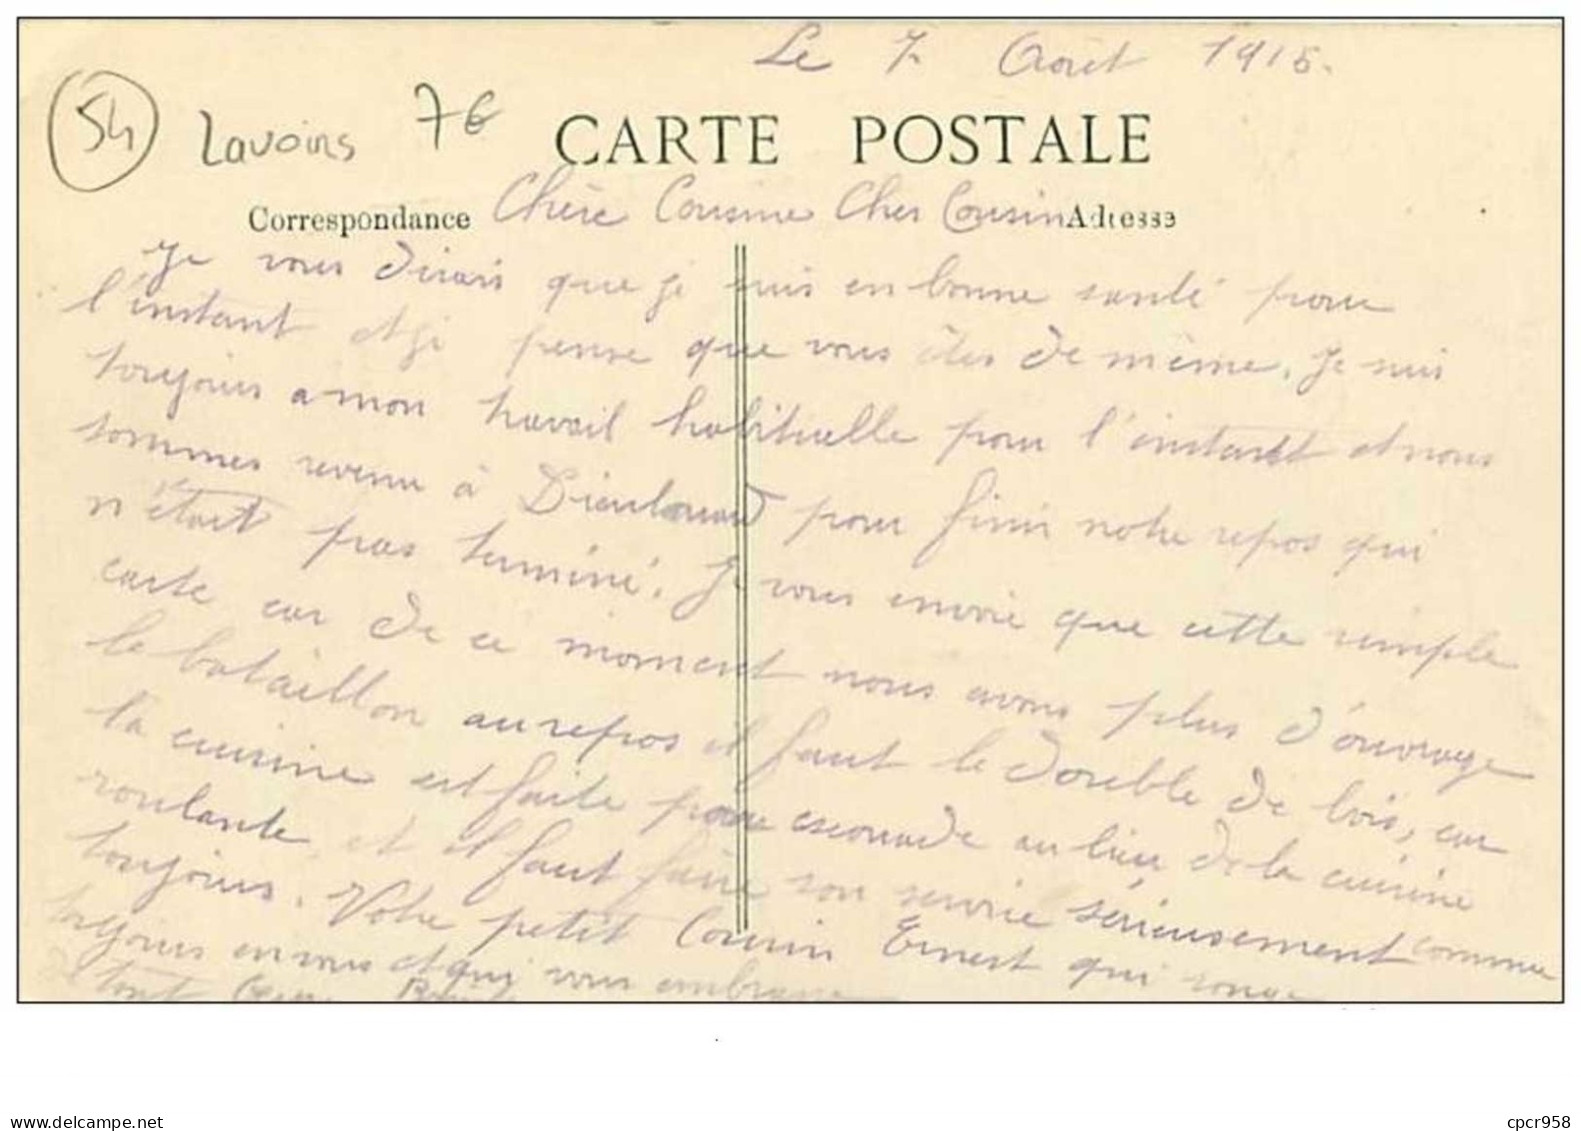 Le 7 Août 1915.
54 Lavoirs 7€
CARTE POSTALE
Correspondance Chère Cousine Cher Cousin Adresse
Je vous dirais que je suis en bonne santé pour
l'instant et je pense que vous êtes de même. Je suis
toujours a mon travail habituelle pour l'instant et nous
sommes revenu à Dieulouard pour finir notre repos qui
n'était pas terminé. Je vous envoie que cette simple
carte car de ce moment nous avons plus d'ouvrage
le bataillon au repos il faut le double de bois, car
la cuisine est faite pour escouade au lieu de la cuisine
roulante, et il faut faire son service sérieusement comme
toujours. Votre petit Cousin Ernest qui songe
toujours en vous et qui vous embrasse
tout
cpcr958